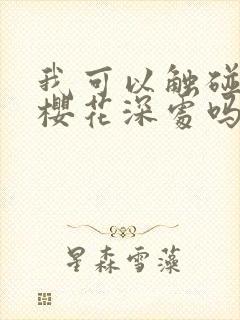 我可以触碰
樱花深处吗
星森雪藻